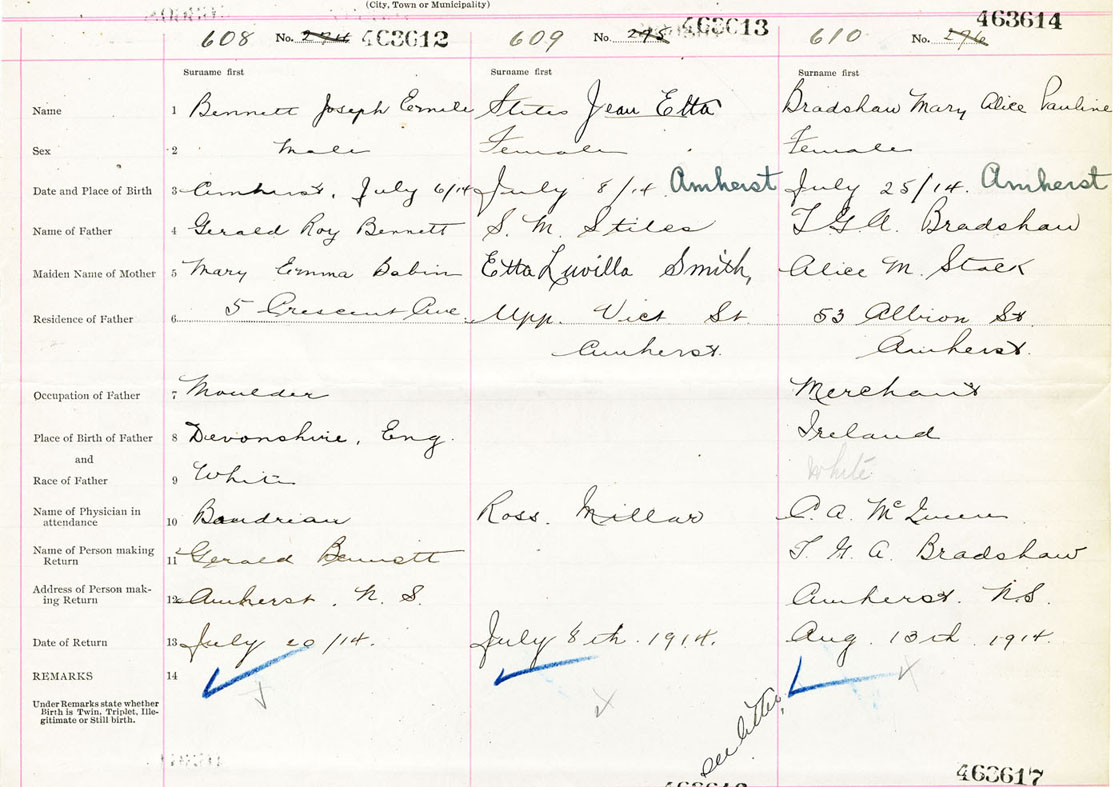 (City, Town or Municipality)
608 No. 274 463612 609 No. 275 463613 610 No. 276 463614
Surname first Surname first Surname first
Name 1 Bennett Joseph Ermile Stiles Jean Etta Bradshaw Mary Alice Pauline
Sex 2 Male Female Female
Date and Place of Birth 3 Amherst, July 6/14 July 8/14 Amherst July 25/14. Amherst
Name of Father 4 Gerald Roy Bennett S. M. Stiles T. G. A. Bradshaw
Maiden Name of Mother 5 Mary Emma Babin Etta Luvilla Smith, Alice M. Stack
Residence of Father 6 5 Crescent Ave. Upp. Vict St. 53 Albion St
Amherst. Amherst.
Occupation of Father 7 Moulder Merchant
Place of Birth of Father 8 Devonshire, Eng. Ireland
and
Race of Father 9 White White
Name of Physician in
attendance 10 Boudrian Ross. Millar C. A. McQueen
Name of Person making
Return 11 Gerald Bennett T. G. A. Bradshaw
Address of Person mak-
ing Return 12 Amherst, N. S. Amherst. N.S.
Date of Return 13 July 20/14. July 8th. 1914. Aug. 13th 1914.
REMARKS 14
Under Remarks state whether
Birth is Twin, Triplet, Ille-
gitimate or Still birth.
see letter
463617